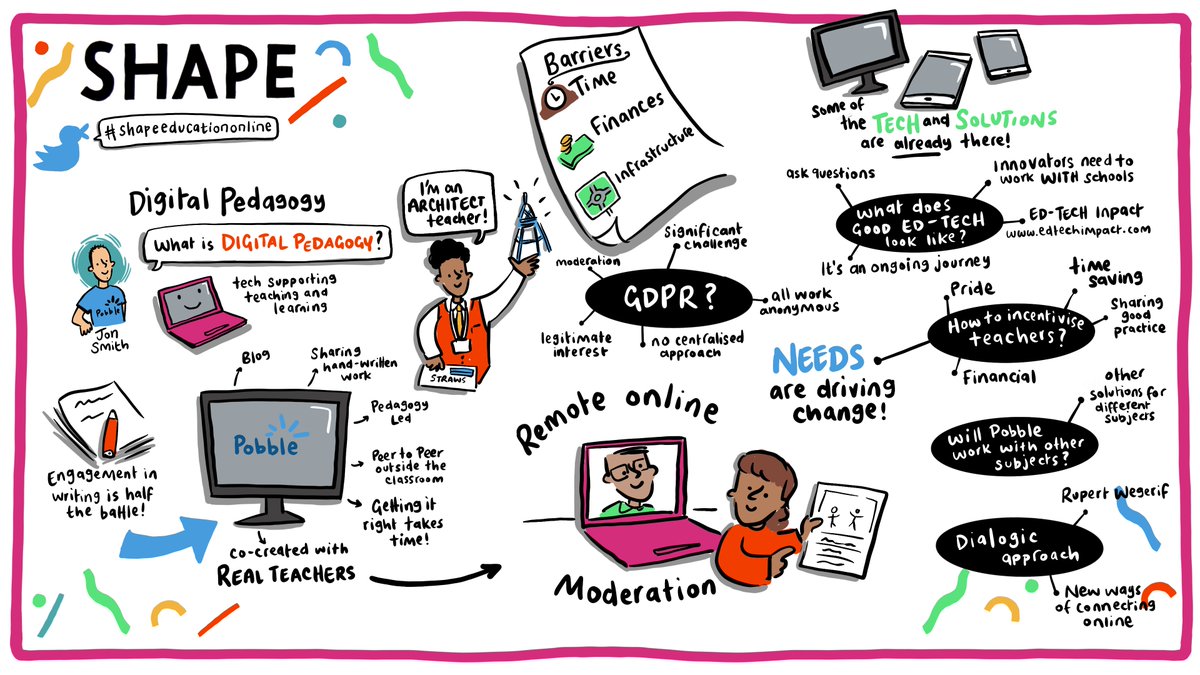 SHAPE
#shapeeducationonline
Digital Pedagogy
What is DIGITAL PEDAGOGY?
Pobble
Jon
Smith
tech supporting
teaching and
learning
Engagement in
writing is half
the battle!
Blog
Sharing
hand-written
work
Pobble
Pedagogy
Led
Peer to Peer
outside the
classroom
Getting it
right takes
time!
co-created with
REAL TEACHERS
I'm an
ARCHITECT
teacher!
STRAWS
Barriers
Time
Finances
Infrastructure
GDPR?
moderation
significant
challenge
all work
anonymous
no centralised
approach
legitimate
interest
Remote online
Moderation
Some of
the TECH and SOLUTIONS
are already there!
What does
good ED-TECH
look like?
ask questions
Innovators need to
work WITH schools
ED-TECH Impact
www.edtechimpact.com
It's an ongoing journey
How to incentivise
teachers?
Pride
time
saving
Sharing
good
practice
Financial
NEEDS
are driving
change!
Will Pobble
work with other
subjects?
other
solutions for
different
subjects
Dialogic
approach
Rupert Wegerif
New ways
of connecting
online